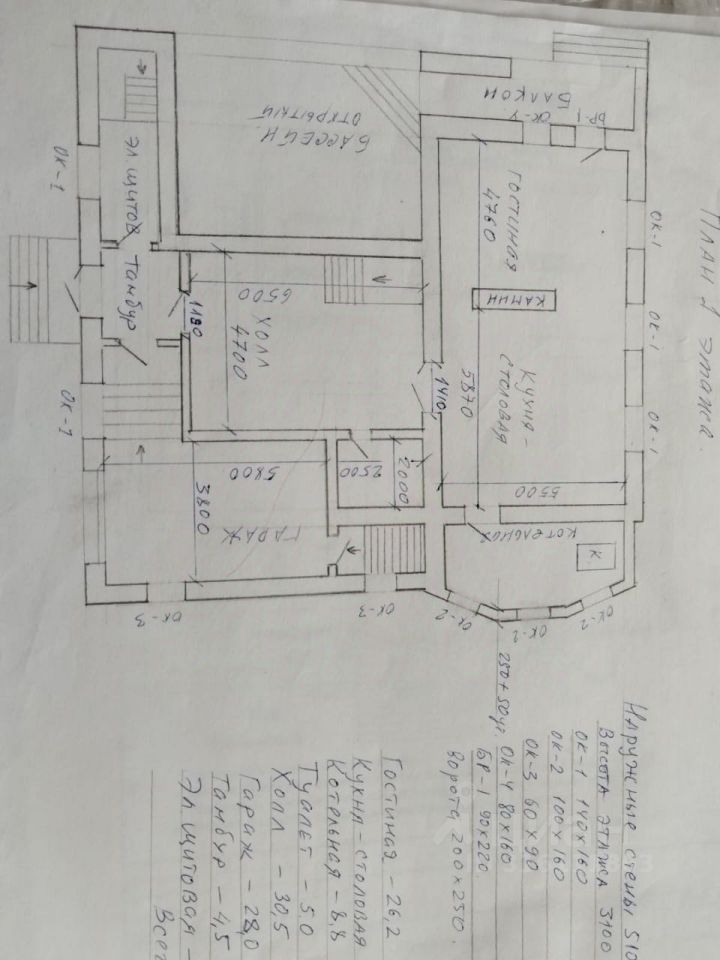 План 1 этажа.
ОК-1
ОК-1
ОК-1
Балкон
БР-1
ОК-4
Гостиная
4760
Камин
Кухня-
столовая
5870
5500
1410
Котельная
К.
ОК-2
ОК-2
ОК-2
Бассейн
открытый
6500
Холл
4700
1190
2500
2000
Эл.щитов
Тамбур
5800
3800
Гараж
ОК-1
ОК-1
ОК-3
ОК-3
Наружные стены 510
250+50ут.
Высота этажа 3100
ОК-1 140х160
ОК-2 100х160
ОК-3 60х90
ОК-4 80х160
БР-1 90х220.
Ворота 200х250.
Гостиная – 26,2
Кухня-столовая
Котельная – 8,8
Туалет – 5,0
Холл – 30,5
Гараж – 28,0
Тамбур – 4,5
Эл.щитовая –
Всег